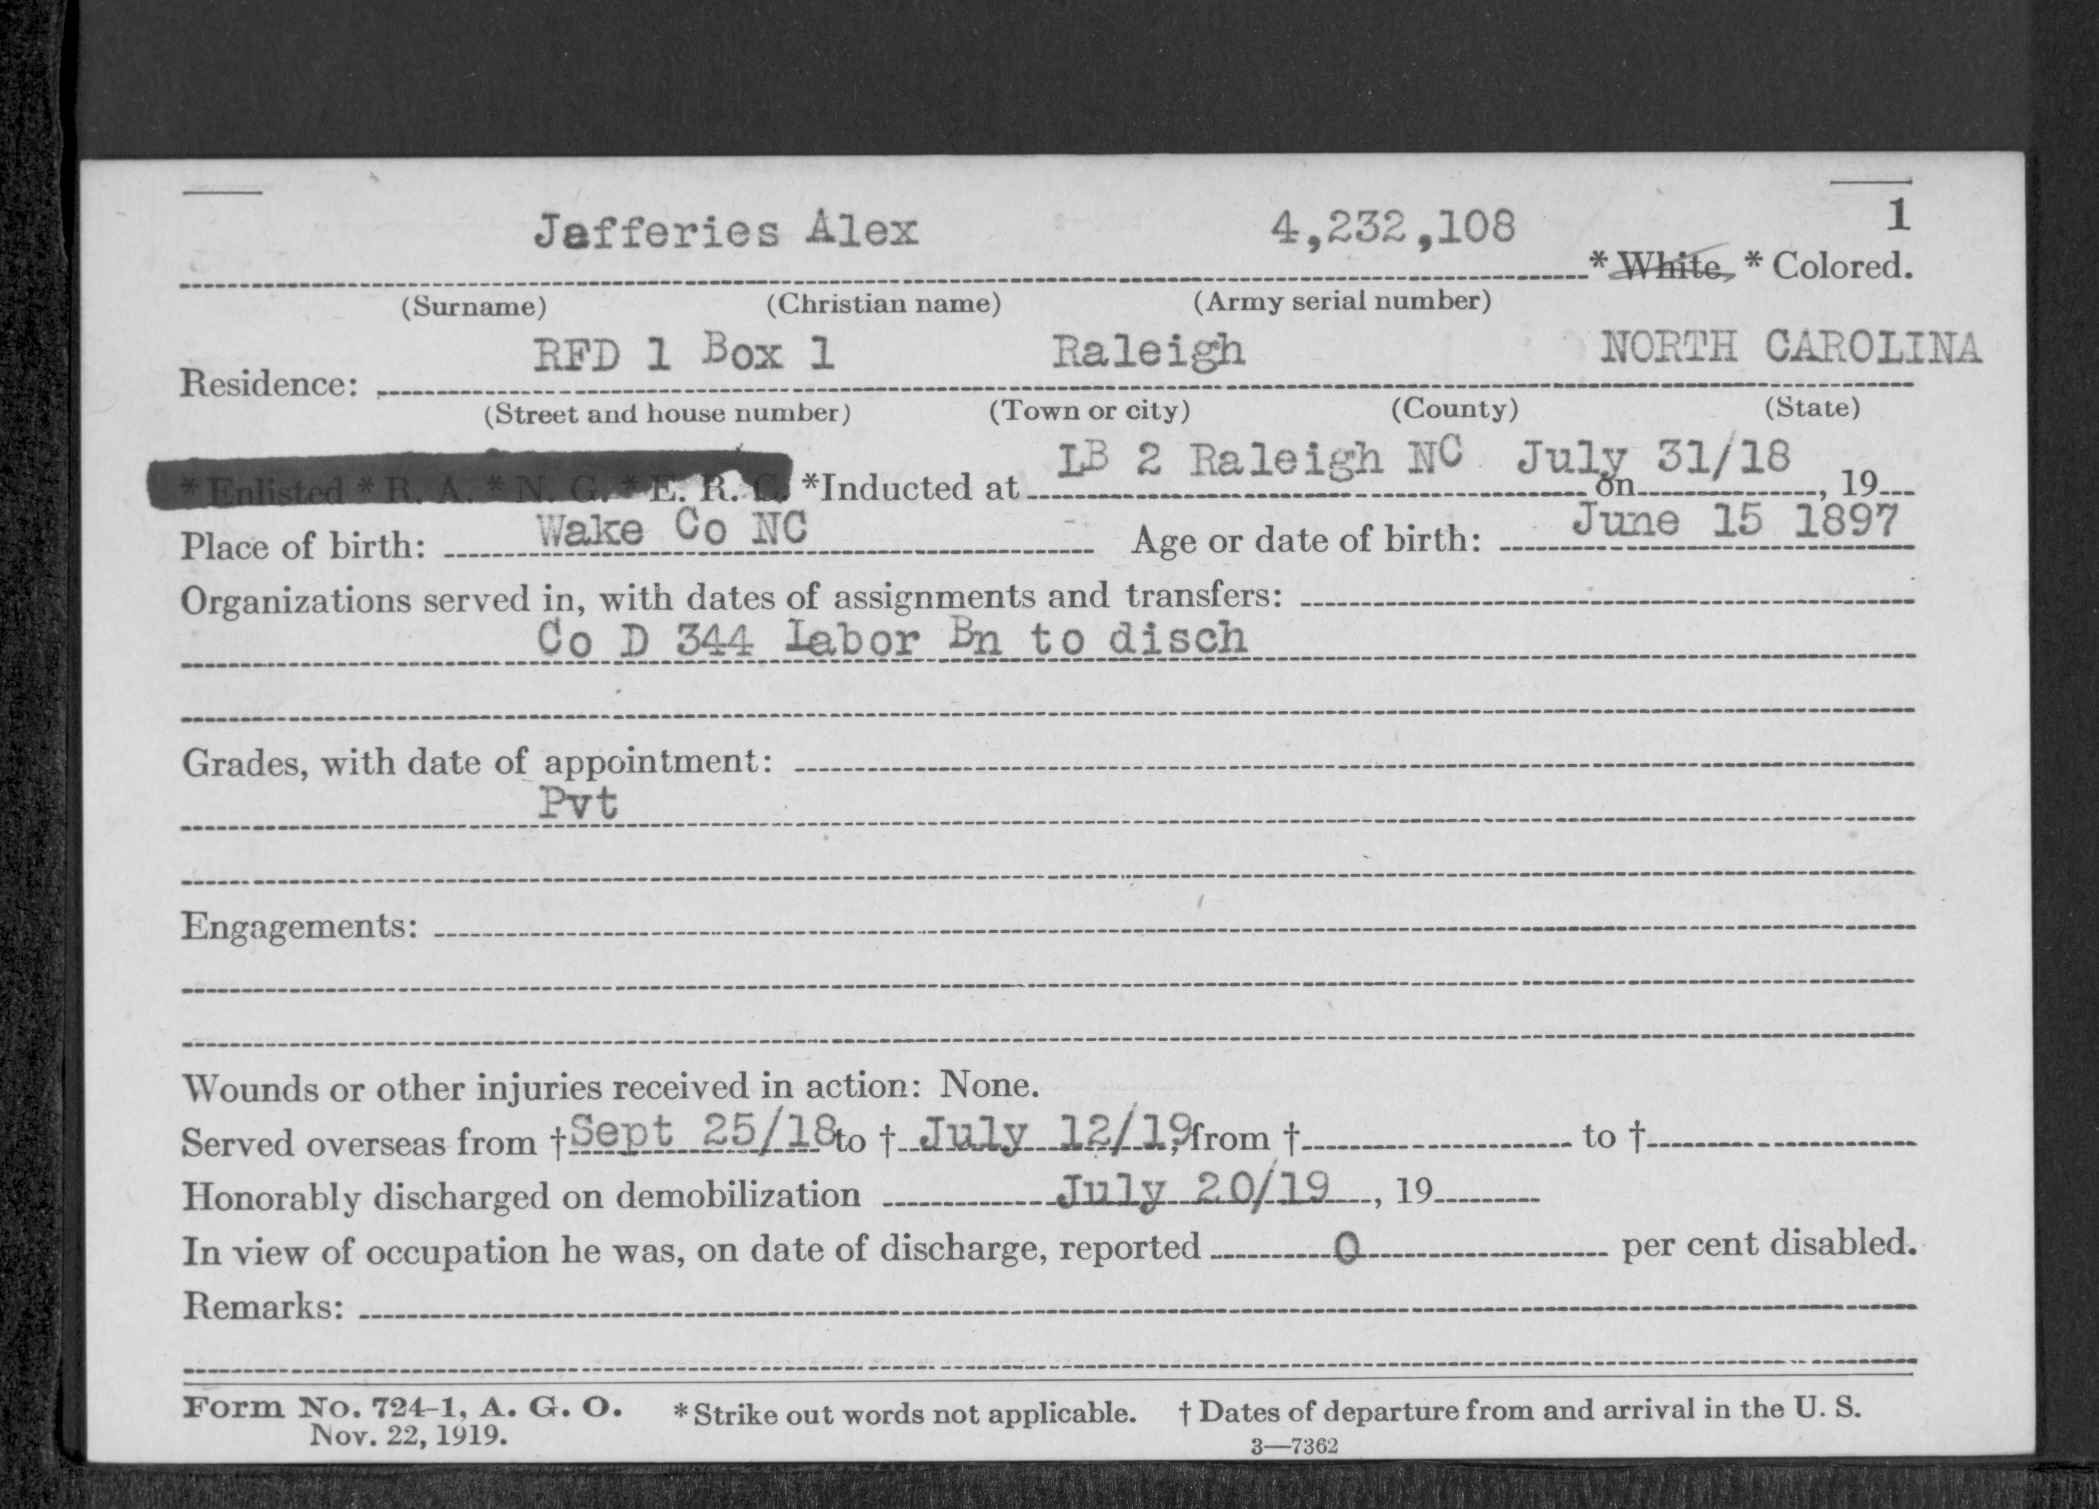 1
Jefferies Alex 4,232,108 * White, * Colored.
(Surname) (Christian name) (Army serial number)
Residence: RFD 1 Box 1 Raleigh NORTH CAROLINA
(Street and house number) (Town or city) (County) (State)
* Enlisted * R. A. * N. G. * E. R. C. *Inducted at LB 2 Raleigh NC on July 31/18, 19
Place of birth: Wake Co NC Age or date of birth: June 15 1897
Organizations served in, with dates of assignments and transfers:
Co D 344 Labor Bn to disch
Grades, with date of appointment:
Pvt
Engagements:
Wounds or other injuries received in action: None.
Served overseas from † Sept 25/18 to † July 12/19, from † to †
Honorably discharged on demobilization July 20/19, 19
In view of occupation he was, on date of discharge, reported 0 per cent disabled.
Remarks:
Form No. 724-1, A. G. O. *Strike out words not applicable. † Dates of departure from and arrival in the U. S.
Nov. 22, 1919. 3—7362